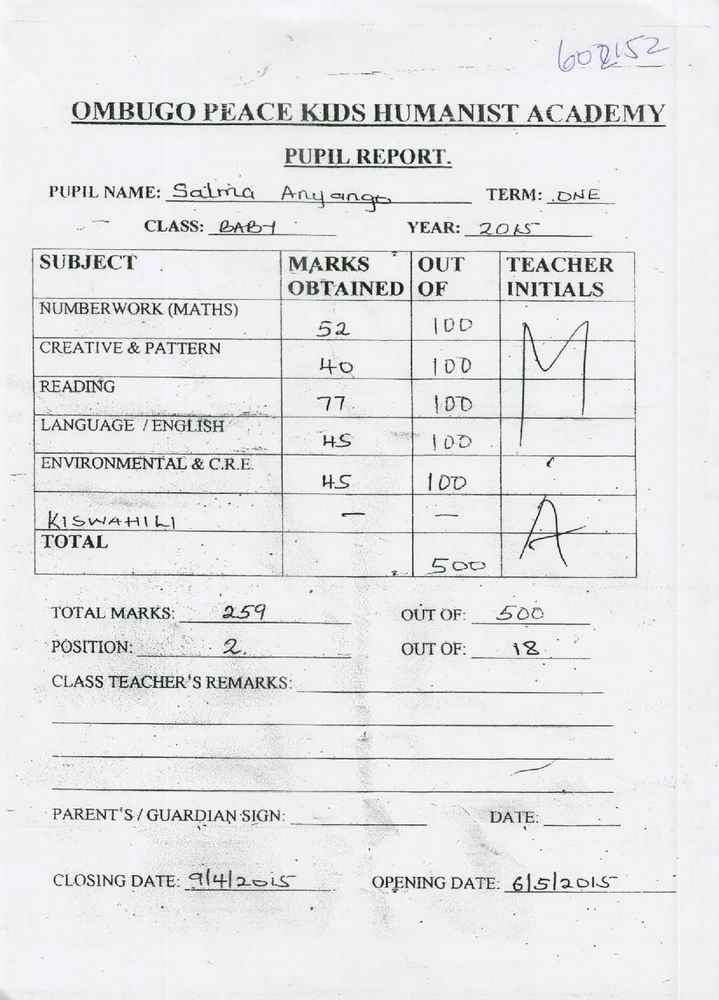 602152
OMBUGO PEACE KIDS HUMANIST ACADEMY
PUPIL REPORT.
PUPIL NAME: Salma Anyango TERM: ONE
CLASS: BABY YEAR: 2015
SUBJECT MARKS OBTAINED OUT OF TEACHER INITIALS
NUMBERWORK (MATHS) 52 100
CREATIVE & PATTERN 40 100
READING 77 100
LANGUAGE / ENGLISH 45 100
ENVIRONMENTAL & C.R.E. 45 100
KISWAHILI — —
M A
TOTAL 500
TOTAL MARKS: 259 OUT OF: 500
POSITION: 2. OUT OF: 18
CLASS TEACHER'S REMARKS:
PARENT'S / GUARDIAN SIGN: DATE:
CLOSING DATE: 9/4/2015 OPENING DATE: 6/5/2015